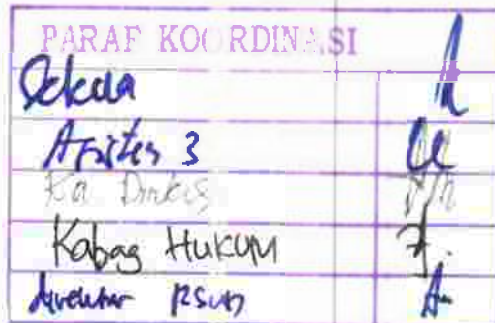 PARAF KOORDINASI
Sekda
Asisten 3
Ka Dinkes
Kabag Hukum
direktur RSUD